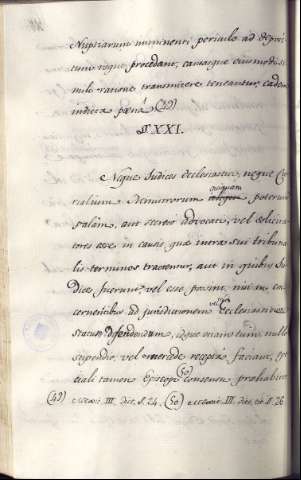 Nuptiarum imminenti periculo ad
cumque, procedant, eamque eiusmodi si
mili ratione transmittere teneantur, eadem
indicta poena (49)
§ XXI.
Neque Judices Ecclesiastici, neque Cu
rialium quispiam poterunt
palam, aut secreto advocati, vel solicita
tores esse in causis, quae intra sui tribuna
lis terminos tractentur, aut in quibus Ju
dices fuerint, vel esse possint, nisi in con
cernentibus ad jurisdictionem vel Ecclesiasticum
statum defendendum, idque etiam tum nullo
stipendio, vel mercede recepta faciant,
ciali tamen Episcopi (50) consensu prohabito
(49) III. dict. §. 24. (50) III. dict. tit. §. 26